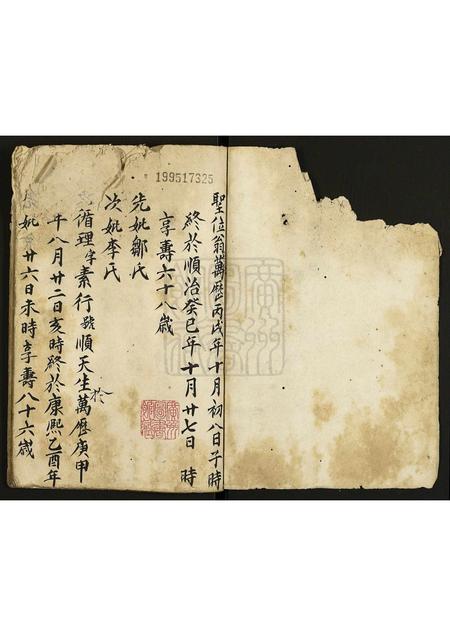 199517325
聖位翁萬曆丙戌年十月初八日子時
終於順治癸巳年十月廿七日 時
享壽六十八歳
先妣鄒氏
次妣李氏
循理字素行號順天生於萬曆庚甲
年八月廿二日亥時終於康熙乙酉年
妣 廿六日未時享壽八十六歳